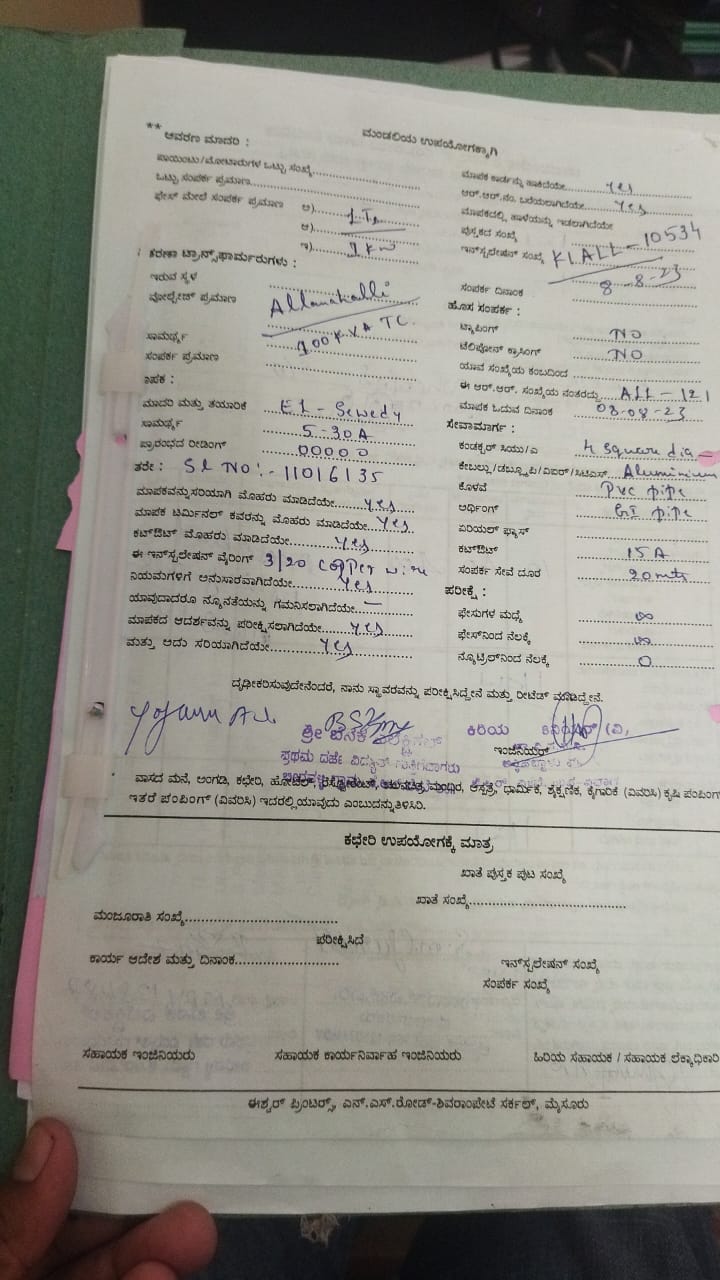 ಮಂಡಲಿಯ ಉಪಯೋಗಕ್ಕಾಗಿ
** ಆವರಣ ಮಾದರಿ :
ಪಾಯಿಂಟು/ಮೋಟಾರುಗಳ ಒಟ್ಟು ಸಂಖ್ಯೆ
ಒಟ್ಟು ಸಂಪರ್ಕ ಪ್ರಮಾಣ
ಫೇಸ್ ಮೇಲೆ ಸಂಪರ್ಕ ಪ್ರಮಾಣ ಅ)
ಆ)
ಇ) 1 KW
ಟ್ರಾನ್ಸ್‌ಫಾರ್ಮರುಗಳು :
ಇರುವ ಸ್ಥಳ Allanahalli
ವೋಲ್ಟೇಜ್ ಪ್ರಮಾಣ
100 KVA TC.
ಸಾಮರ್ಥ್ಯ
ಸಂಪರ್ಕ ಪ್ರಮಾಣ
ಮಾದರಿ ಮತ್ತು ತಯಾರಿಕೆ EL - Sewedy
ಸಾಮರ್ಥ್ಯ 5-30A
ಪ್ರಾರಂಭದ ರೀಡಿಂಗ್ 00000
ತರೇ : Sl No:- 11016135
ಮಾಪಕವನ್ನು ಸರಿಯಾಗಿ ಮೊಹರು ಮಾಡಿದೆಯೇ yes
ಮಾಪಕ ಟರ್ಮಿನಲ್ ಕವರನ್ನು ಮೊಹರು ಮಾಡಿದೆಯೇ yes
ಕಟ್‌ಔಟ್ ಮೊಹರು ಮಾಡಿದೆಯೇ yes
ಈ ಇನ್‌ಸ್ಟಲೇಷನ್ ವೈರಿಂಗ್ 3/20 copper wire
ನಿಯಮಗಳಿಗೆ ಅನುಸಾರವಾಗಿದೆಯೇ yes
ಯಾವುದಾದರೂ ನ್ಯೂನತೆಯನ್ನು ಗಮನಿಸಲಾಗಿದೆಯೇ —
ಮಾಪಕದ ಆದರ್ಶವನ್ನು ಪರೀಕ್ಷಿಸಲಾಗಿದೆಯೇ yes
ಮತ್ತು ಅದು ಸರಿಯಾಗಿದೆಯೇ yes
ಮಾಪಕ ಕಾರ್ಡನ್ನು ಹಾಕಿದೆಯೇ yes
ಆರ್.ಆರ್.ನಂ. ಬರೆಯಲಾಗಿದೆಯೇ yes
ಮಾಪಕದಲ್ಲಿ ಹಾಳೆಯನ್ನು ಇಡಲಾಗಿದೆಯೇ
ಪುಸ್ತಕದ ಸಂಖ್ಯೆ
ಇನ್‌ಸ್ಟಲೇಷನ್ ಸಂಖ್ಯೆ KLALL-10534
ಸಂಪರ್ಕ ದಿನಾಂಕ 8-8-23
ಹೊಸ ಸಂಪರ್ಕ :
ಟ್ಯಾಪಿಂಗ್ NO
ಟೆಲಿಫೋನ್ ಕ್ರಾಸಿಂಗ್ NO
ಯಾವ ಸಂಖ್ಯೆಯ ಕಂಬದಿಂದ
ಈ ಆರ್.ಆರ್. ಸಂಖ್ಯೆಯ ನಂತರದ್ದು ALL-121
ಮಾಪಕ ಓದುವ ದಿನಾಂಕ 08-08-23
ಸೇವಾಮಾರ್ಗ :
ಕಂಡಕ್ಟರ್ ಸಿಯು/ಎ 4 square dia
ಕೇಬಲ್ಲು/ಡಬ್ಲ್ಯೂಪಿ/ವಿಐಆರ್/ಸಿಟಿಎಸ್ Aluminium
ಕೊಳವೆ PVC pipe
ಅರ್ಥಿಂಗ್ GI pipe
ಏರಿಯಲ್ ಫ್ಯೂಸ್
ಕಟ್‌ಔಟ್ 15 A
ಸಂಪರ್ಕ ಸೇವೆ ದೂರ 20mts
ಪರೀಕ್ಷೆ :
ಫೇಸುಗಳ ಮಧ್ಯೆ ∞
ಫೇಸ್‌ನಿಂದ ನೆಲಕ್ಕೆ ∞
ನ್ಯೂಟ್ರಲ್‌ನಿಂದ ನೆಲಕ್ಕೆ 0
ದೃಢೀಕರಿಸುವುದೇನೆಂದರೆ, ನಾನು ಸ್ಥಾವರವನ್ನು ಪರೀಕ್ಷಿಸಿದ್ದೇನೆ ಮತ್ತು ರೀಟೆಡ್ ಮಾಡಿದ್ದೇನೆ.
ಕಿರಿಯ ಇಂಜಿನಿಯರ್ (ವಿ,
ಇಂಜಿನಿಯರ್
ಪ್ರಥಮ ದರ್ಜೆ ವಿದ್ಯುತ್ ಗುತ್ತಿಗೆದಾರರು
ವಾಸದ ಮನೆ, ಅಂಗಡಿ, ಕಛೇರಿ, ಹೋಟೆಲ್, ರೆಸ್ಟೋರೆಂಟ್, ಮಂದಿರ, ಆಸ್ಪತ್ರೆ, ಧಾರ್ಮಿಕ, ಶೈಕ್ಷಣಿಕ, ಕೈಗಾರಿಕೆ (ವಿವರಿಸಿ) ಕೃಷಿ ಪಂಪಿಂಗ್
ಇತರೆ ಪಂಪಿಂಗ್ (ವಿವರಿಸಿ) ಇದರಲ್ಲಿ ಯಾವುದು ಎಂಬುದನ್ನು ತಿಳಿಸಿರಿ.
ಕಛೇರಿ ಉಪಯೋಗಕ್ಕೆ ಮಾತ್ರ
ಖಾತೆ ಪುಸ್ತಕ ಪುಟ ಸಂಖ್ಯೆ
ಖಾತೆ ಸಂಖ್ಯೆ
ಮಂಜೂರಾತಿ ಸಂಖ್ಯೆ
ಪರೀಕ್ಷಿಸಿದೆ
ಕಾರ್ಯ ಆದೇಶ ಮತ್ತು ದಿನಾಂಕ
ಇನ್‌ಸ್ಟಲೇಷನ್ ಸಂಖ್ಯೆ
ಸಂಪರ್ಕ ಸಂಖ್ಯೆ
ಸಹಾಯಕ ಇಂಜಿನಿಯರು ಸಹಾಯಕ ಕಾರ್ಯನಿರ್ವಾಹ ಇಂಜಿನಿಯರು ಹಿರಿಯ ಸಹಾಯಕ / ಸಹಾಯಕ ಲೆಕ್ಕಾಧಿಕಾರಿ
ಈಶ್ವರ್ ಪ್ರಿಂಟರ್ಸ್, ಎನ್.ಎಸ್.ರೋಡ್-ಶಿವರಾಂಪೇಟೆ ಸರ್ಕಲ್, ಮೈಸೂರು